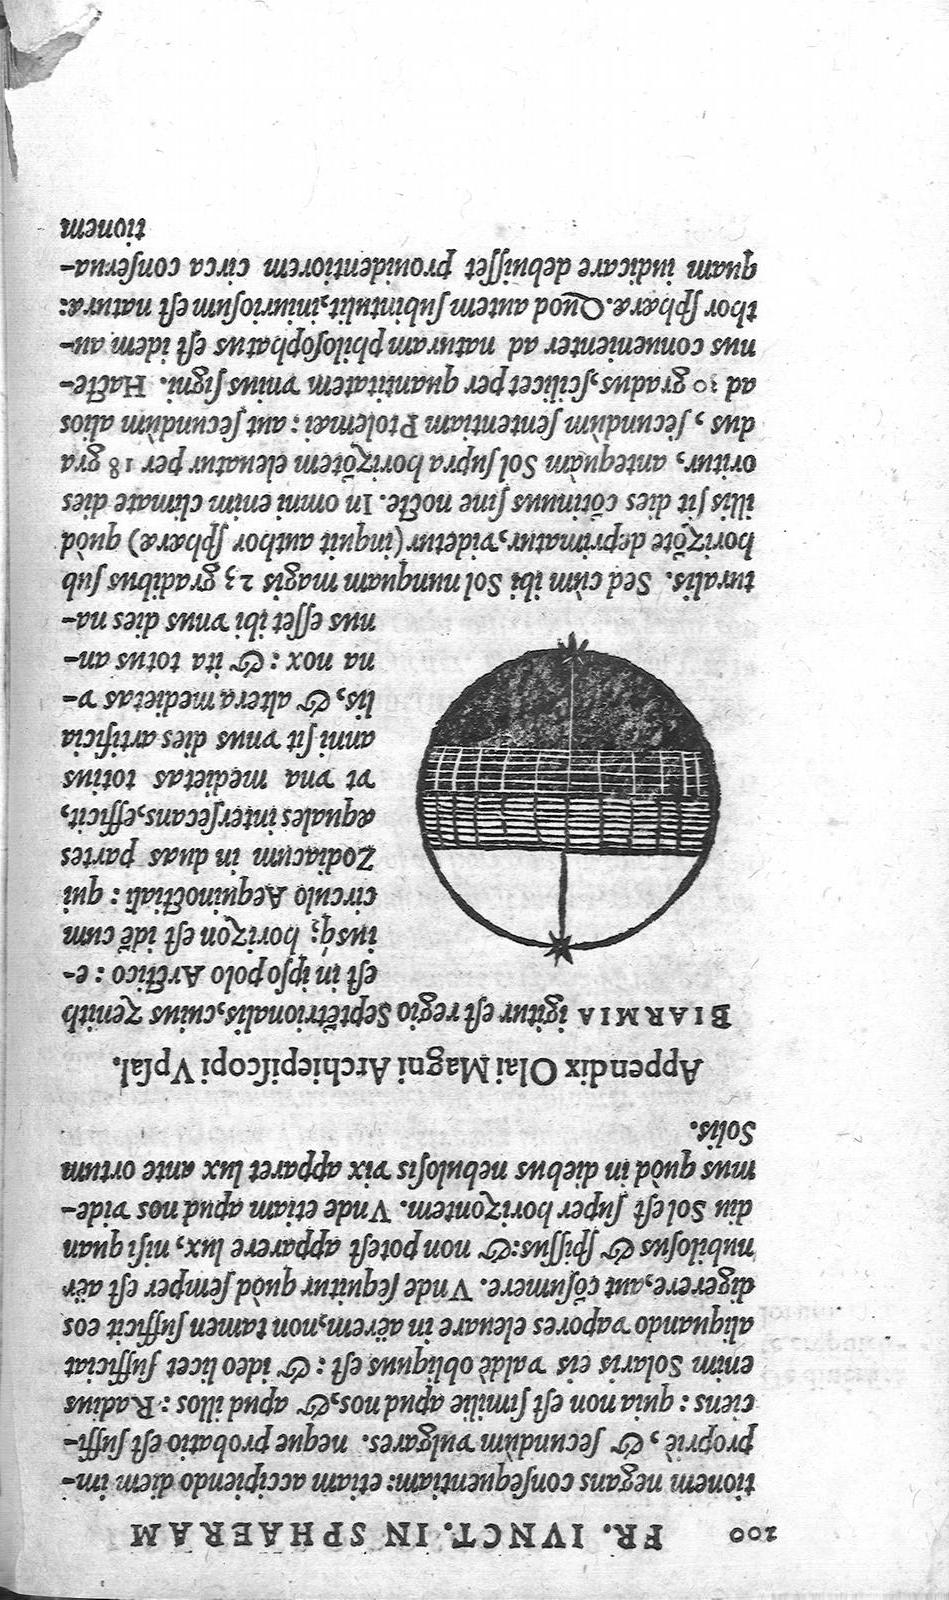 200 FR. IVNCT. IN SPHAERAM
tionem negans conſequentiam: etiam accipiendo diem im-
propriè, & ſecundùm vulgares. neque probatio eſt ſuffi-
ciens: quia non eſt ſimilie apud nos, & apud illos: Radius
enim Solaris eis valdè obliquus eſt: & ideo licet ſufficiat
aliquando vapores eleuare in aërem, non tamen ſufficit eos
digerere, aut cõſumere. Vnde ſequitur quòd ſemper eſt aër
nubiloſus & ſpiſſus: & non poteſt apparere lux, niſi quan
diu Sol eſt ſuper horizontem. Vnde etiam apud nos vide-
mus quòd in diebus nebuloſis vix apparet lux ante ortum
Solis.
Appendix Olai Magni Archiepiſcopi Vpſal.
BIARMIA igitur eſt regio Septẽtrionalis, cuius zenith
eſt in ipſo polo Arctico: e-
iusq; horizon eſt idẽ cum
circulo Aequinoctiali: qui
Zodiacum in duas partes
æquales interſecans, efficit,
vt vna medietas totius
anni ſit vnus dies artificia
lis, & altera medietas v-
na nox: & ita totus an-
nus eſſet ibi vnus dies na-
turalis. Sed cùm ibi Sol nunquam magis 23 gradibus ſub
horizõte deprimatur, videtur (inquit author ſphæræ) quòd
illis ſit dies cõtinuus ſine nocte. In omni enim climate dies
oritur, antequàm Sol ſupra horizõtem eleuatur per 18 gra
dus, ſecundùm ſententiam Ptolemæi: aut ſecundùm alios
ad 30 gradus, ſcilicet per quantitatem vnius ſigni. Hacte-
nus conuenienter ad naturam philoſophatus eſt idem au-
thor ſphæræ. Quod autem ſubintulit, iniurioſum eſt naturæ:
quam iudicare debuiſſet prouidentiorem circa conſerua-
tionem